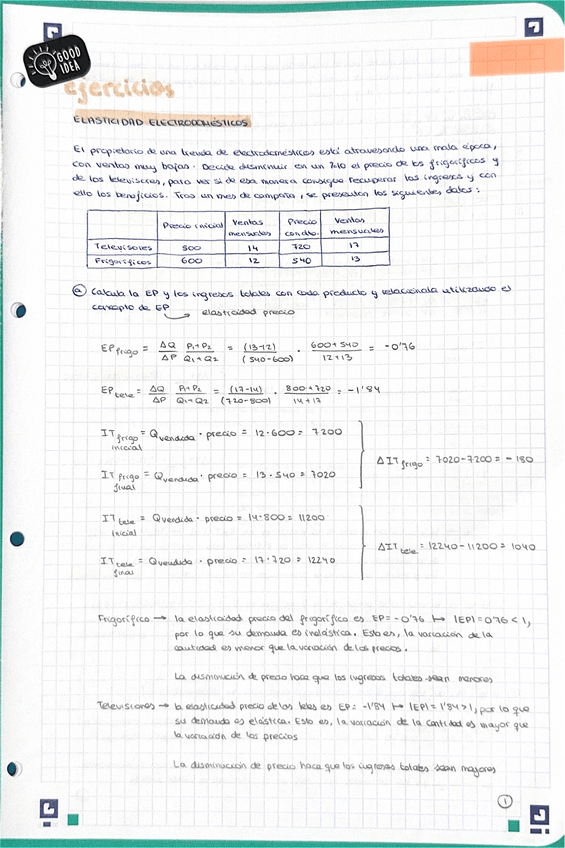 GOOD
IDEA
ejercicios
ELASTICIDAD ELECTRODOMÉSTICOS
El propietario de una tienda de electrodomésticos está atravesando una mala época,
con ventas muy bajas. Decide disminuir en un %10 el precio de los frigoríficos y
de los televisores, para ver si de esa manera consigue recuperar los ingresos y con
ello los beneficios. Tras un mes de campaña, se presentan los siguientes datos:
Precio inicial Ventas mensuales Precio con dto. Ventas mensuales
Televisores 800 14 720 17
Frigoríficos 600 12 540 13
a) Calcula la EP y los ingresos totales con cada producto y relaciónala utilizando el
concepto de EP → elasticidad precio
EP frigo = ΔQ/ΔP · P1+P2/Q1+Q2 = (13-12)/(540-600) · 600+540/12+13 = -0'76
EP tele = ΔQ/ΔP · P1+P2/Q1+Q2 = (17-14)/(720-800) · 800+720/14+17 = -1'84
IT frigo inicial = Qvendida · precio = 12·600 = 7200
ΔIT frigo = 7020-7200 = -180
IT frigo final = Qvendida · precio = 13·540 = 7020
IT tele inicial = Qvendida · precio = 14·800 = 11200
ΔIT tele = 12240-11200 = 1040
IT tele final = Qvendida · precio = 17·720 = 12240
Frigorífico → la elasticidad precio del frigorífico es EP=-0'76 ↦ |EP|=0'76 < 1,
por lo que su demanda es inelástica. Esto es, la variación de la
cantidad es menor que la variación de los precios.
La disminución de precio hace que los ingresos totales sean menores
Televisiones → la elasticidad precio de las teles es EP= -1'84 ↦ |EP|=1'84>1, por lo que
su demanda es elástica. Esto es, la variación de la cantidad es mayor que
la variación de los precios
La disminución de precio hace que los ingresos totales sean mayores
1